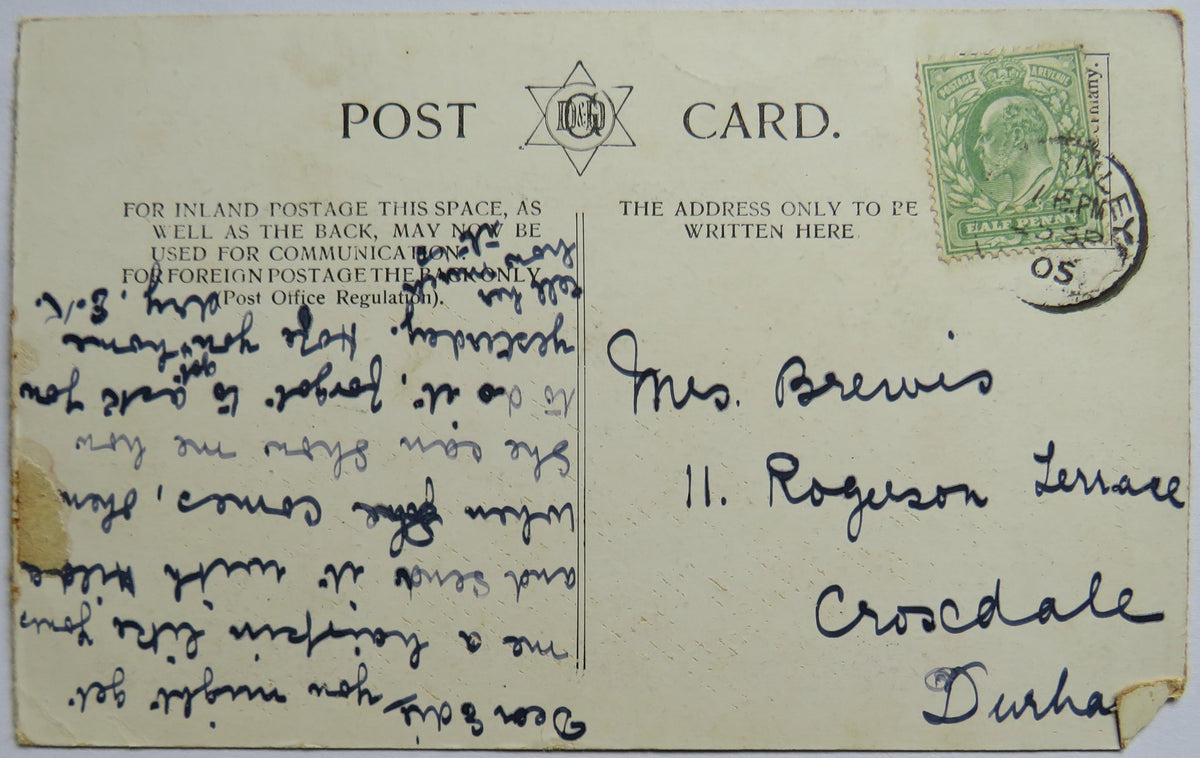 POST CARD.
D&G
FOR INLAND POSTAGE THIS SPACE, AS
WELL AS THE BACK, MAY NOW BE
USED FOR COMMUNICATION.
FOR FOREIGN POSTAGE THE BACK ONLY
(Post Office Regulation).
THE ADDRESS ONLY TO BE
WRITTEN HERE
rmany.
POSTAGE & REVENUE
HALFPENNY
NDLEY
PM
05
Mrs. Brewis
11. Rogerson Terrace
Croxdale
Durha
Dear Edie, you might get
me a hairpin like yours
and send it with Hilda
when she comes, then
she can show me how
to do it, forgot to ask you
yesterday. Hope you got home
dry, E.K.
tell her
how it